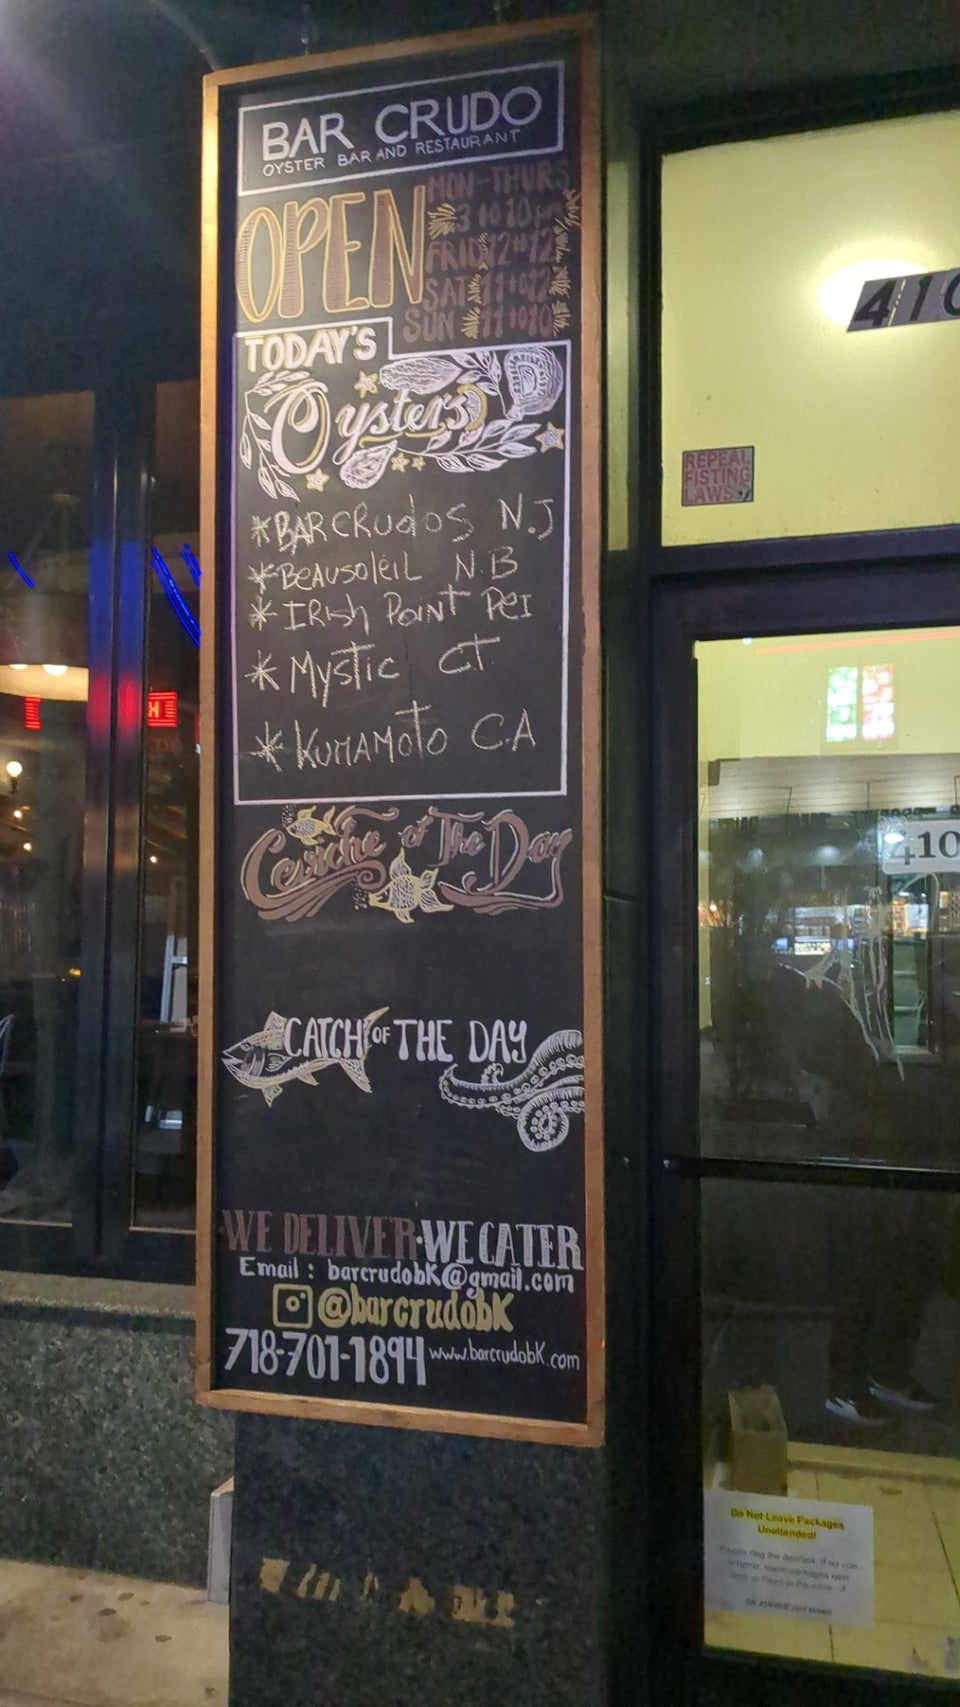 BAR CRUDO
OYSTER BAR AND RESTAURANT
OPEN
MON-THURS
3 to 10 pm
FRI 12 to 12
SAT 11 to 12
SUN 11 to 10
TODAY'S
Oysters
*BARCRUdOS N.J
*BEAUSOLEIL N.B
*IRISH POINT PEI
*MYSTIC CT.
*KUMAMOTO CA
Ceviche of The Day
CATCH OF THE DAY
WE DELIVER·WE CATER
Email : barcrudobK@gmail.com
@barcrudobK
718-701-1894 www.barcrudobK.com
410
REPEAL
FISTING
LAWS
410
Do Not Leave Packages
Unattended!